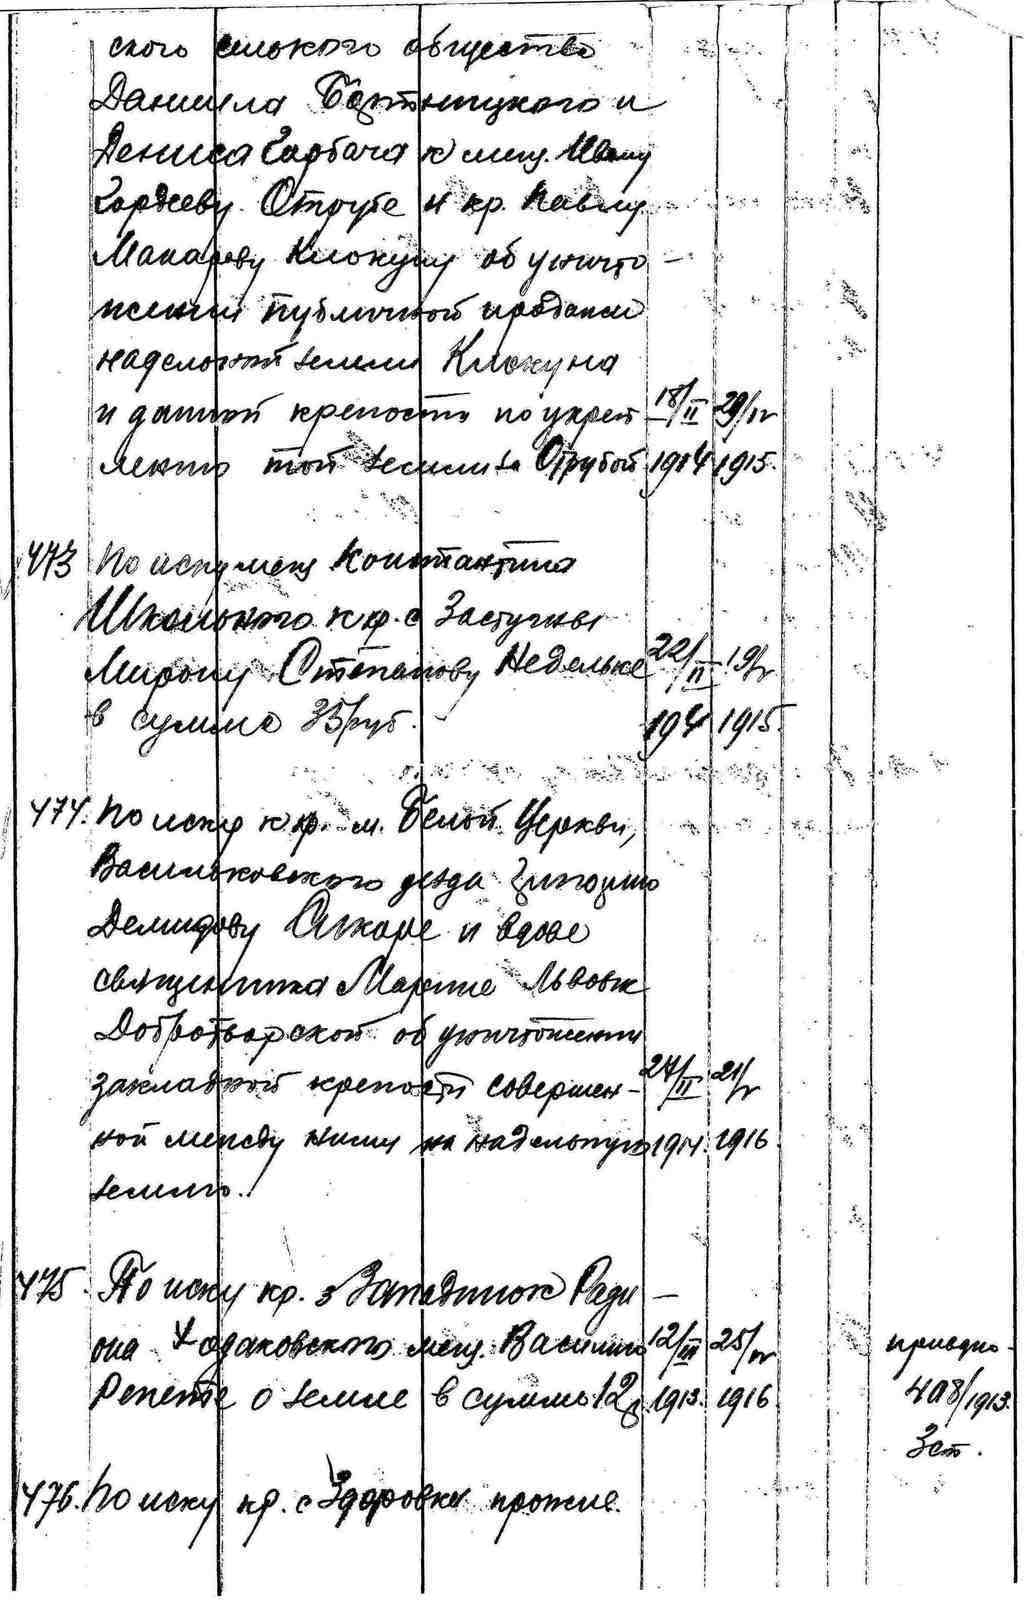 ского сельского общества
Даниила Бортницкого и
Дениса Горбача к мещ. Ивану
Гордееву Отрубе и кр. Павлу
Макарову Клокуну об уничто-
жении публичной продажи
надельной земли Клокуна
и данной крепости по укреп- 18/II 29/IV
лению той земли за Отрубой 1914 1915.
473 По иску мещ Константина
Школьного к кр. с Застучны
Мирону Степанову Недельке 22/II 19/V
в сумме 35 руб. 1914 1915.
474. По иску к кр. м. Белой Церкви,
Васильковского уезда Григорию
Демидову и вдове
священника Марине Львовне
Добротворской об уничтожении
закладной крепости совершен- 27/II 21/V
ной между ними на надельную 1914. 1916.
землю.
475. По иску кр. з Западинок Ради-
она Ходаковского мещ. Василию 12/III 25/IV приедно-
Репете о земле в сумме 12 р 1913. 1916 408/1913.
Зст.
476. По иску кр. с Здоровки прожив.